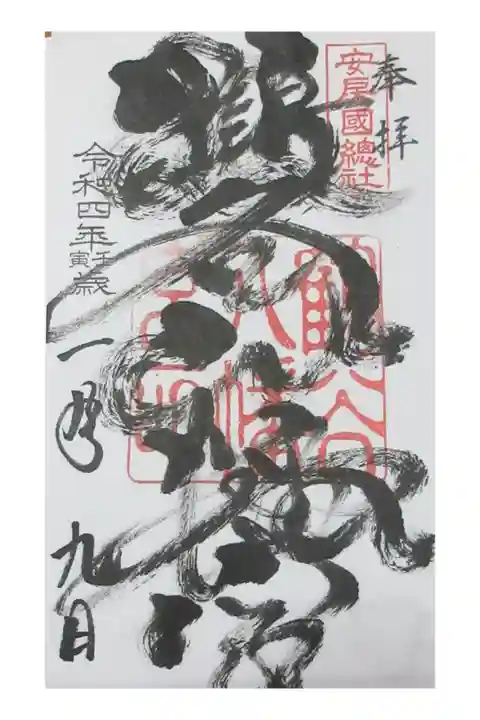 奉拝
安房國總社
鶴谷八幡宮
鶴谷
八幡
宮印
令和四年壬寅歳
一月
九日